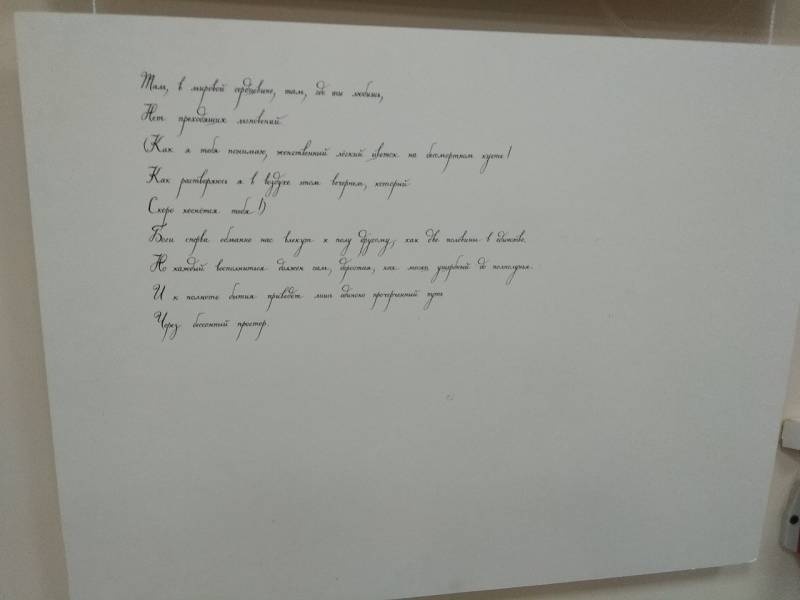 Там, в мировой сердцевине, там, где ты любишь,
Нет преходящих мгновений.
(Как я тебя понимаю, женственный лёгкий цветок на бессмертном кусте!
Как растворяюсь я в воздухе этом вечернем, который
Скоро коснётся тебя!)
Боги сперва обманно нас влекут к полу другому, как две половины в единство.
Но каждый восполниться должен сам, дорастая, как месяц ущербный до полнолунья.
И к полноте бытия приведёт лишь одиноко прочерченный путь
Через бессонный простор.